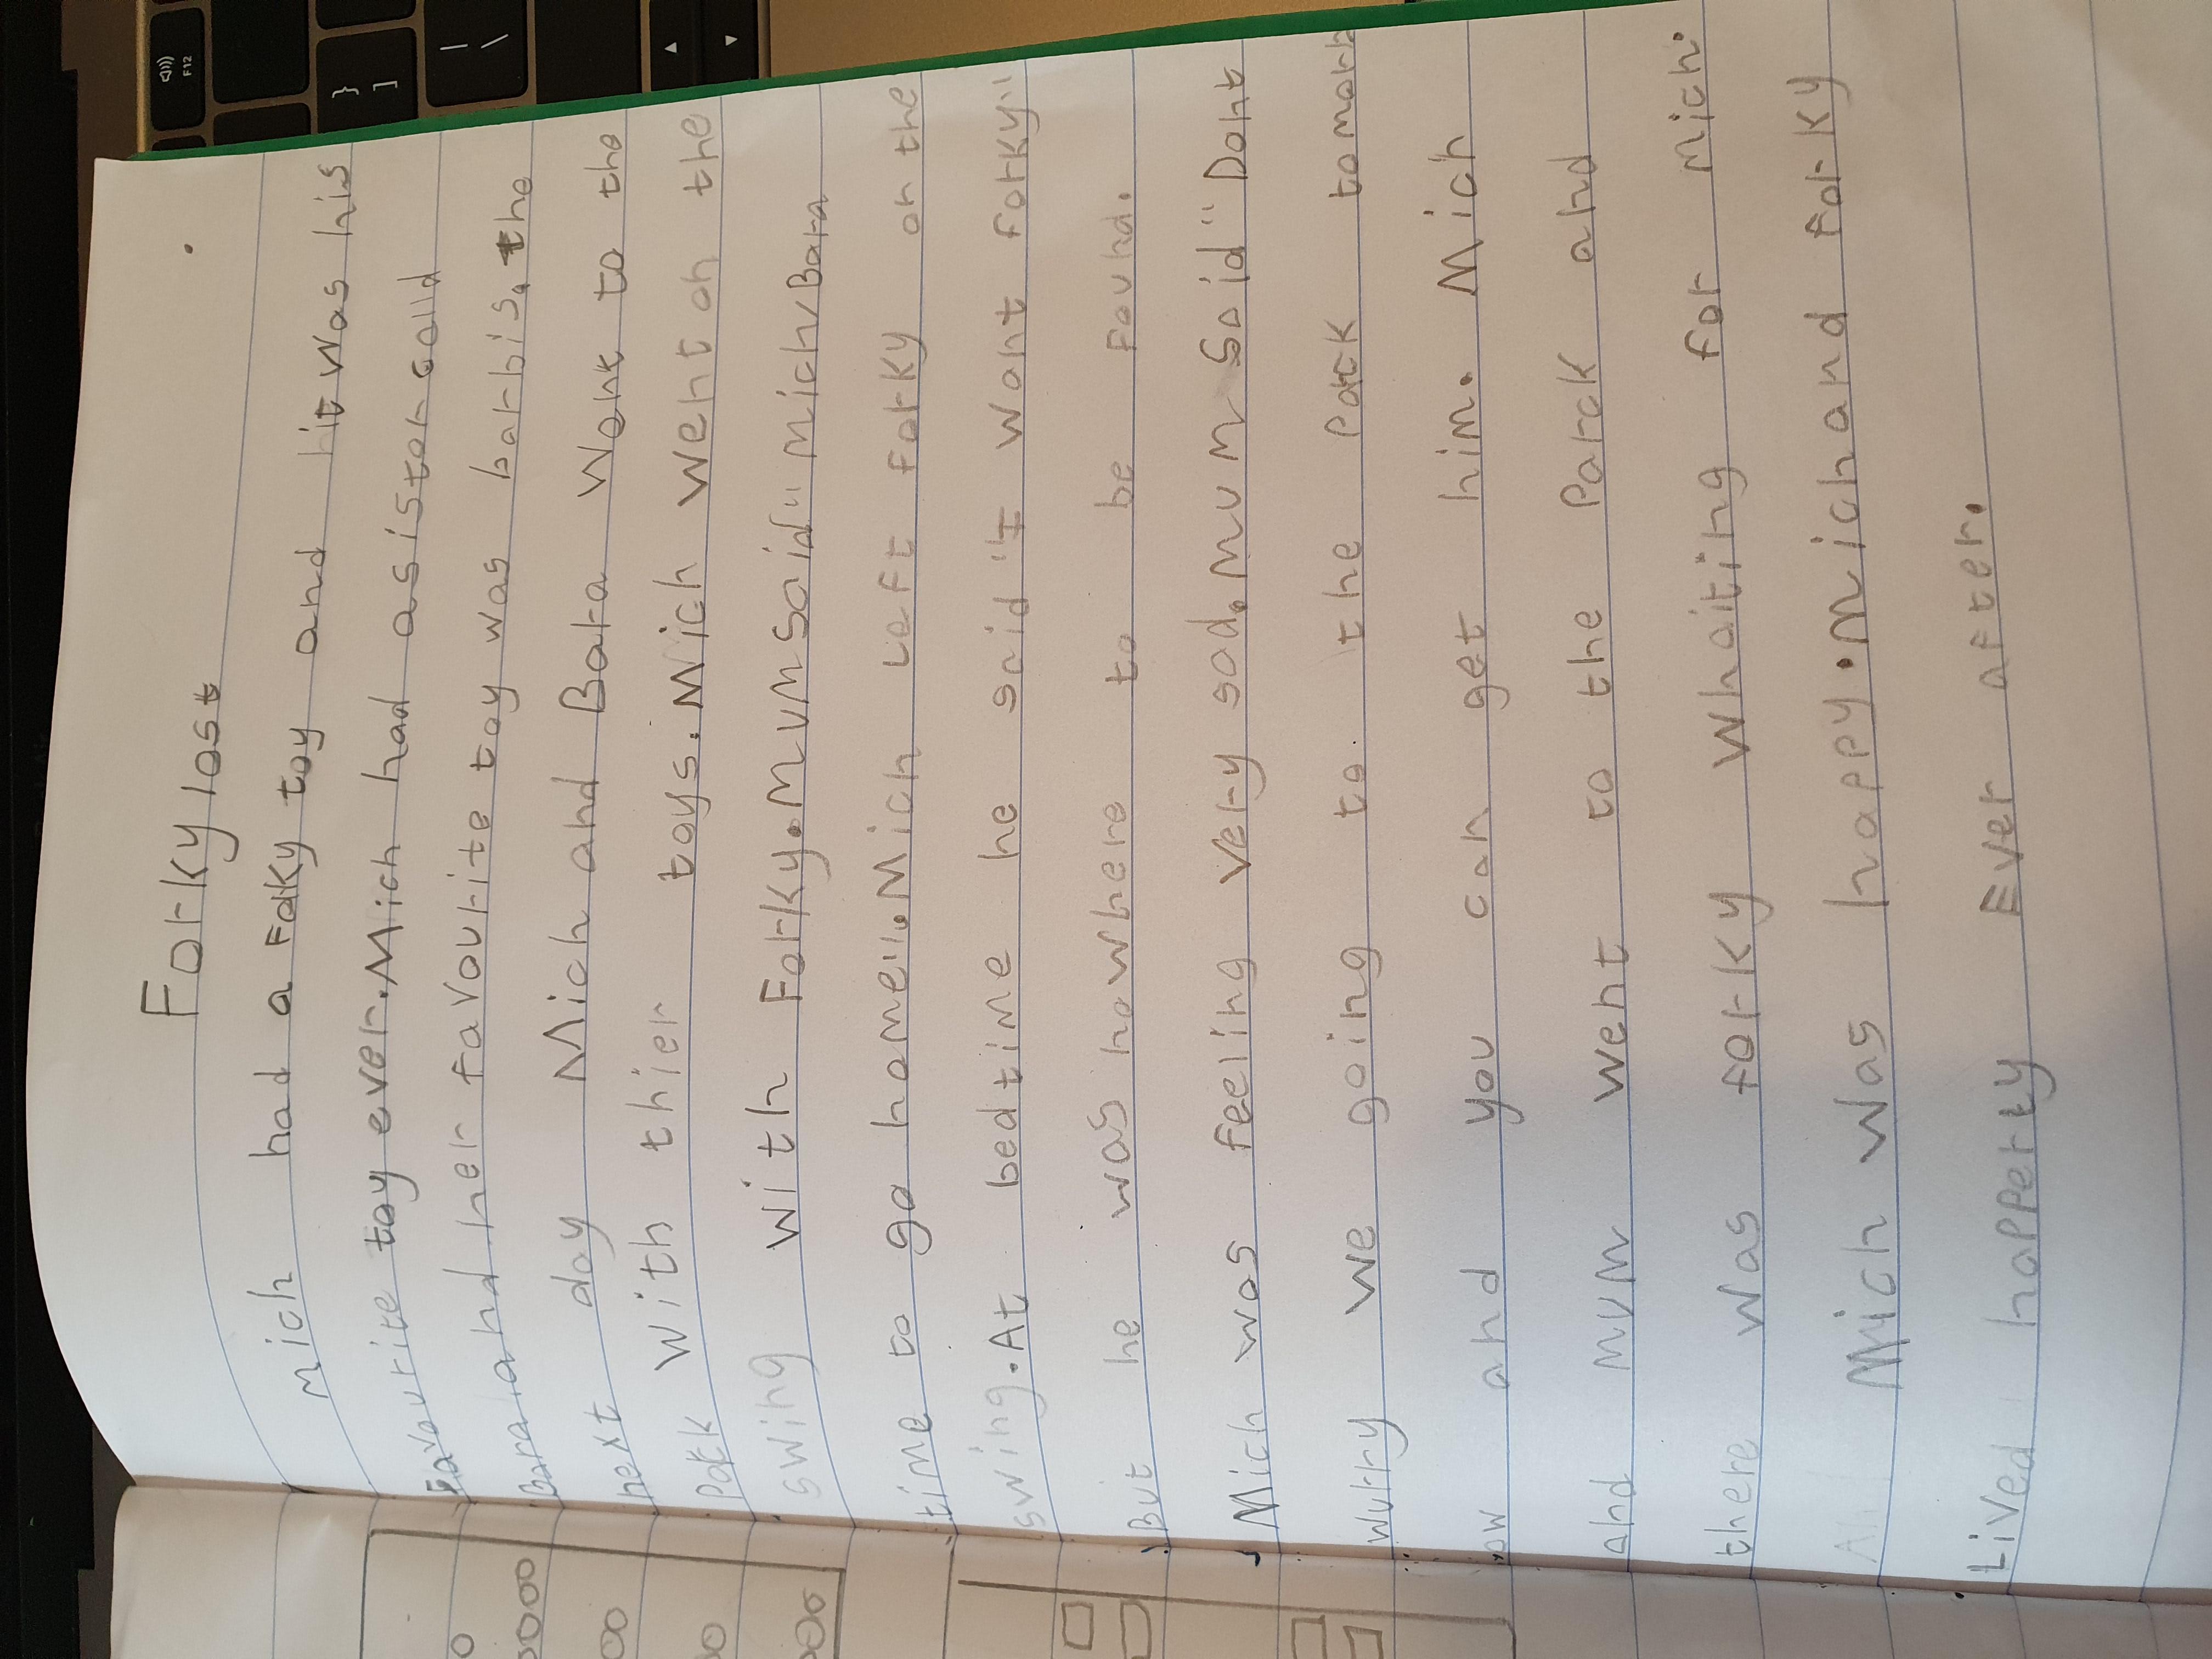 Forky lost
Mich had a Forky toy and hit was his
Favourite toy ever. Mich had a sister calld
Bara and her favourite toy was barbis. the
next day Mich and Bara went to the
Pack with thier toys. Mich went on the
swing with Forky. Mum said "Mich Bara
time to go home". Mich Left Forky on the
swing. At bedtime he said "I want forky"
But he was nowhere to be Found.
Mich was feeling very sad. Mum Said "Dont
wurry we going to the Park tomorr
ow and you can get him. Mich
and mum went to the Parck and
there was forky whaiting for Mich.
Mich was happy. Mich and forky
Lived happerty Ever after.
F12
}
]
|
\